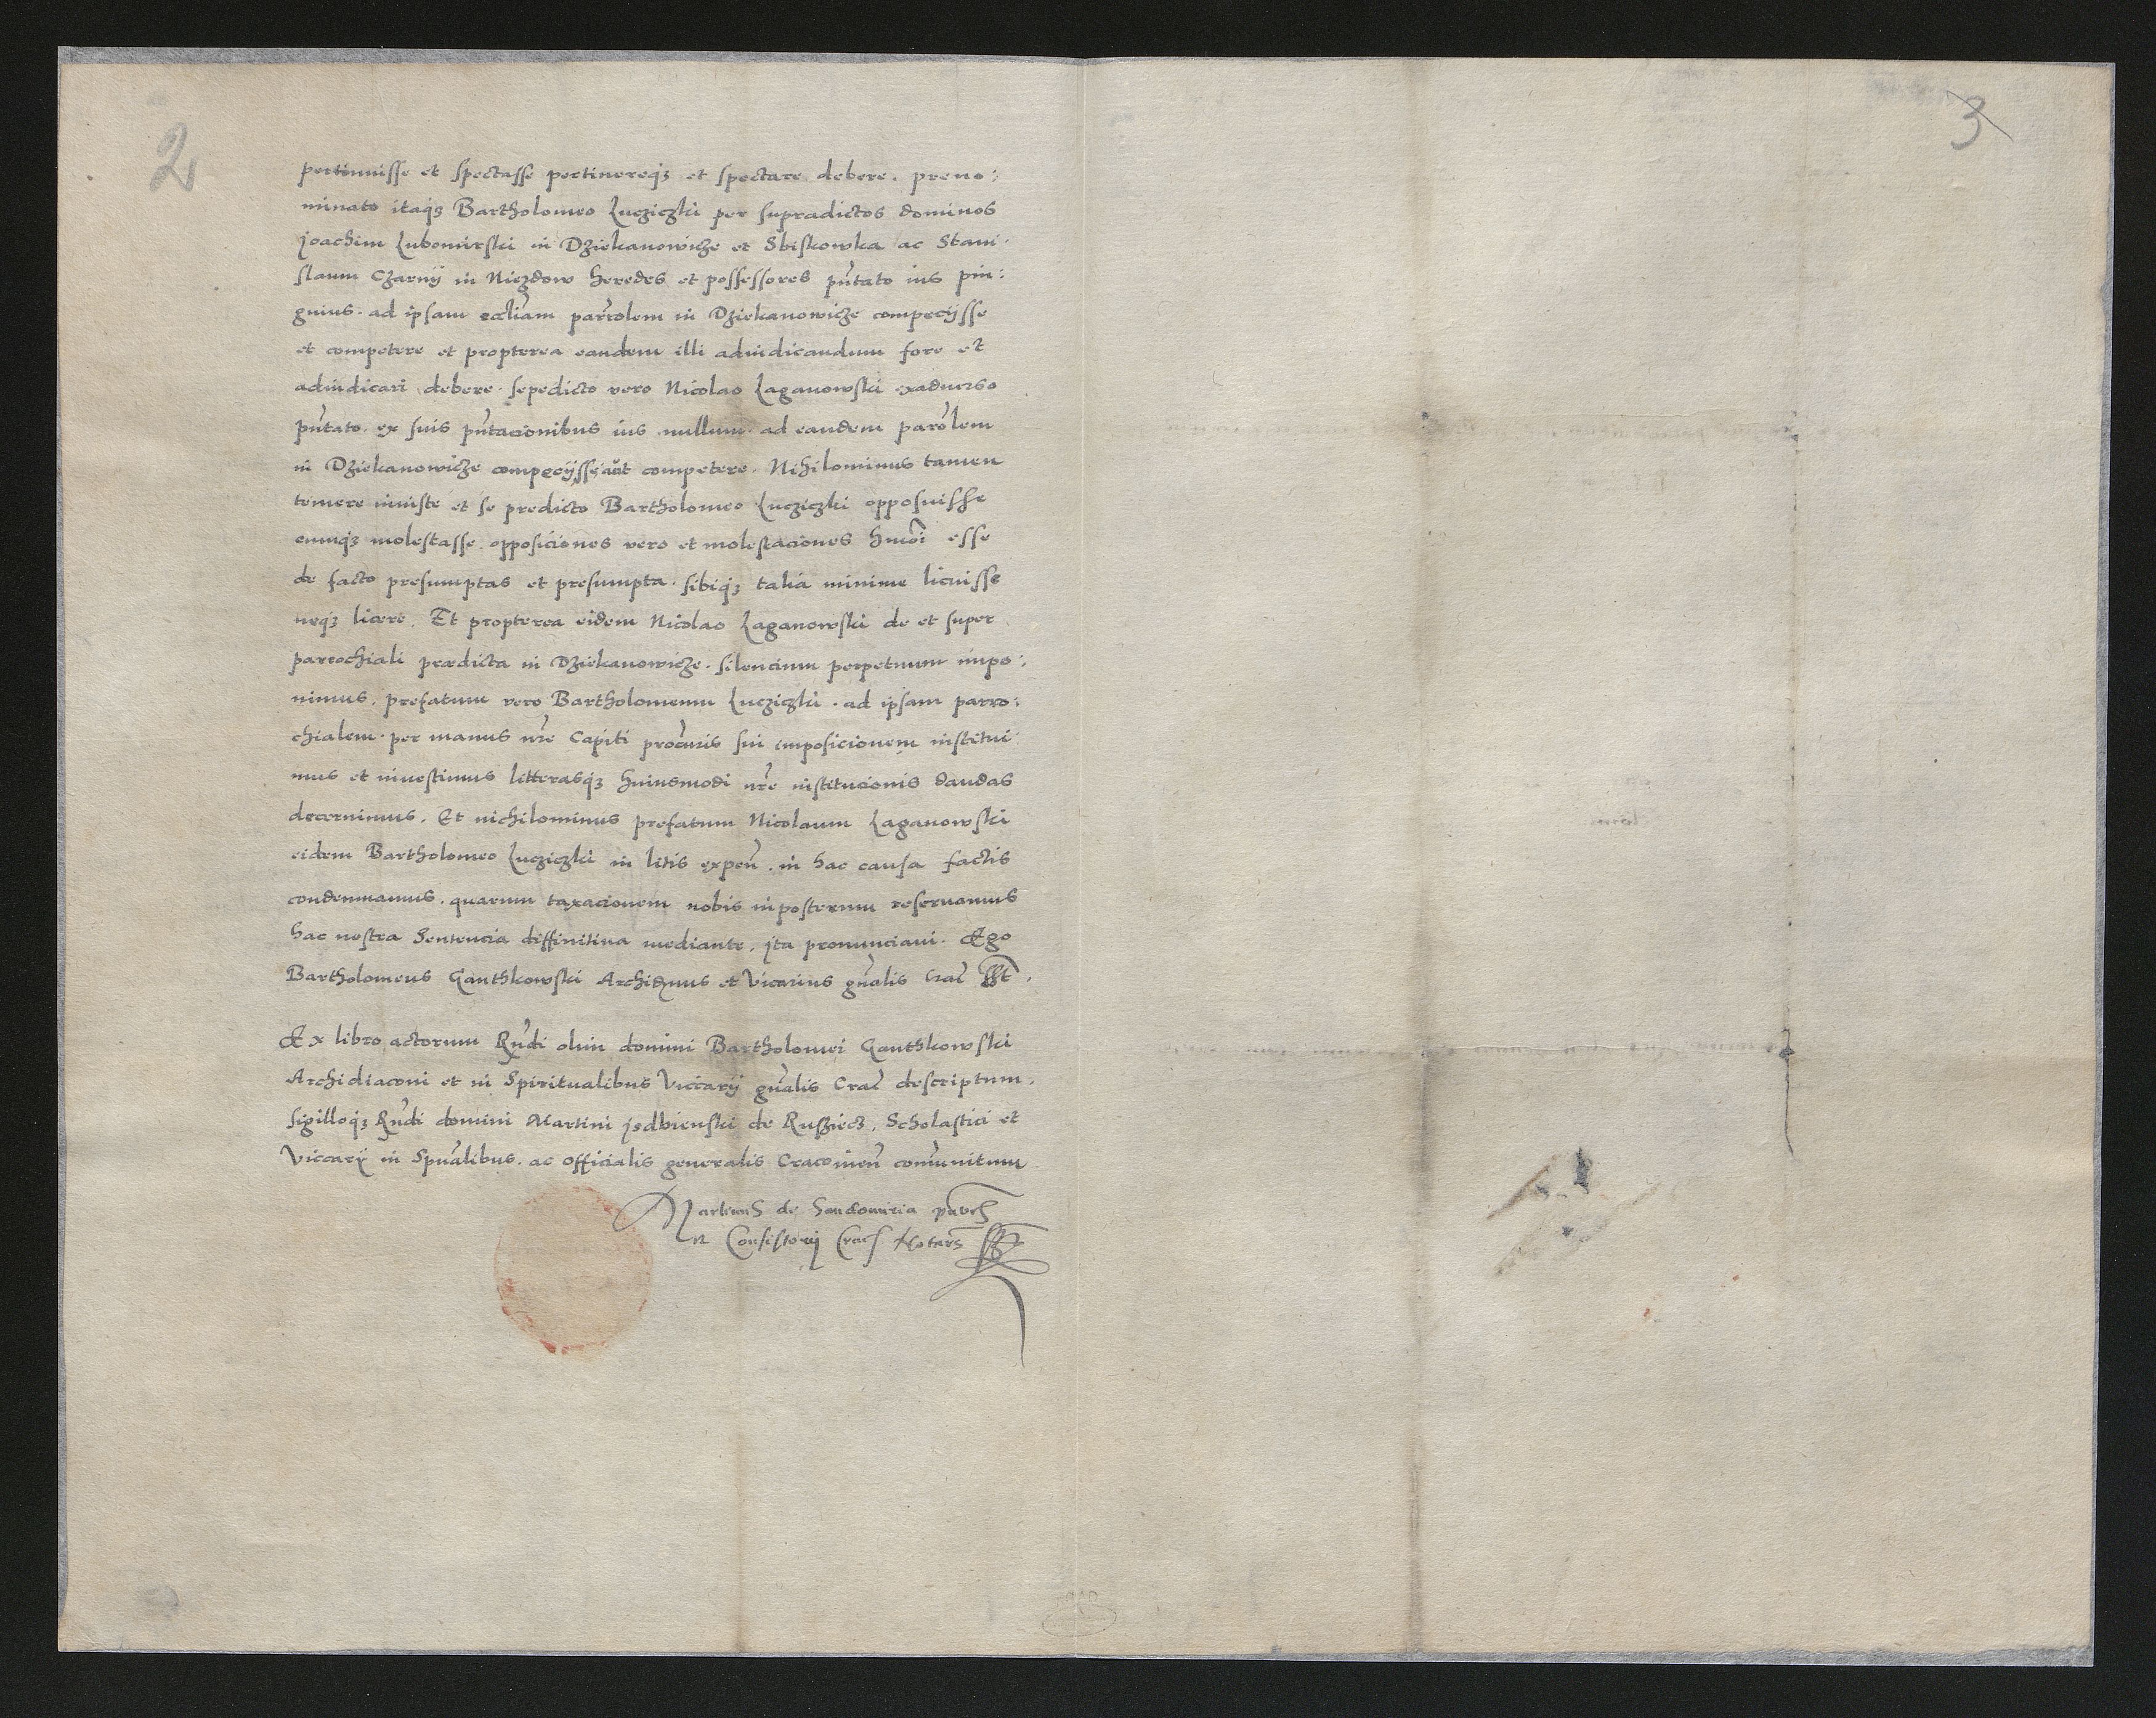 2
3
pertinuisse et spectasse pertinereq3 et spectare debere. preno:
minato itaq3 Bartholomeo Lucziczki per supradictos dominos
Joachim Lubomirski in Dziekanowicze et Sbiskowka ac Stani.
slaum Czarnij in Niezdow heredes et possessores pntato ius pin:
guius. ad ipsam eccliam parrolem in Dziekanowicze compecijsse
et competere et propterea eandem illi adiudicandum fore et
adiudicari debere. sepedicto vero Nicolao Laganowski exaduerso
pntato. ex suis pntacionibus ius nullum. ad eandem parolem
in Dziekanowicze compecijsse aut competere. Nihilominus tamen
temere iniuste et se predicto Bartholomeo Lucziczki opposuisse
eumq3 molestasse. opposiciones vero et molestaciones hmoi esse
de facto presumptas et presumpta. sibiq3 talia minime licuisse
neq3 licere. Et propterea eidem Nicolao Laganowski de et super
parrochiali prædicta in Dziekanowicze. silencium perpetuum impo:
nimus. prefatum vero Bartholomeum Lucziczki. ad ipsam parro:
chialem. per manus nre Capiti procuris sui imposicionem institui
mus et inuestimus litterasq3 huiusmodi nre institucionis dandas
decernimus. Et nichilominus prefatum Nicolaum Laganowski
eidem Bartholomeo Lucziczki in litis expen. in hac causa factis
condemnamus. quarum taxacionem nobis inposterum reseruamus
hac nostra Sentencia diffinitiua mediante. ita pronunciaui. Ego
Bartholomeus Ganthkowski Archidnus et Vicarius gnalis Crac sst.
Ex libro actorum Rndi olim domini Bartholomei Ganthkowski
Archidiaconi et in Spiritualibus Viccarij gnalis Crac descriptum.
sigilloq3 Rndi domini Martini Jsdbienski de Rusziecz. Scholastici et
Viccarij in Spualibus. ac officialis generalis Cracouien comunitum
Martinus de Sandomiria
Consistorij Crac Notars